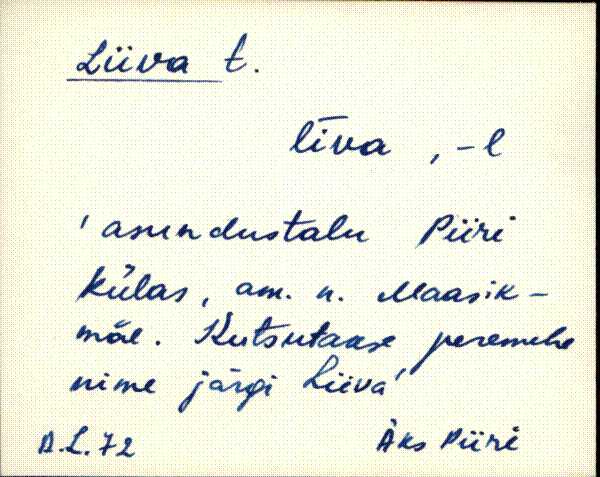 Liiva t.
līva, -l
'asundustalu Piiri
külas, am. n. Maasik-
mäe. Kutsutakse peremehe
nime järgi Liiva'
D.L.72 Äks Piiri